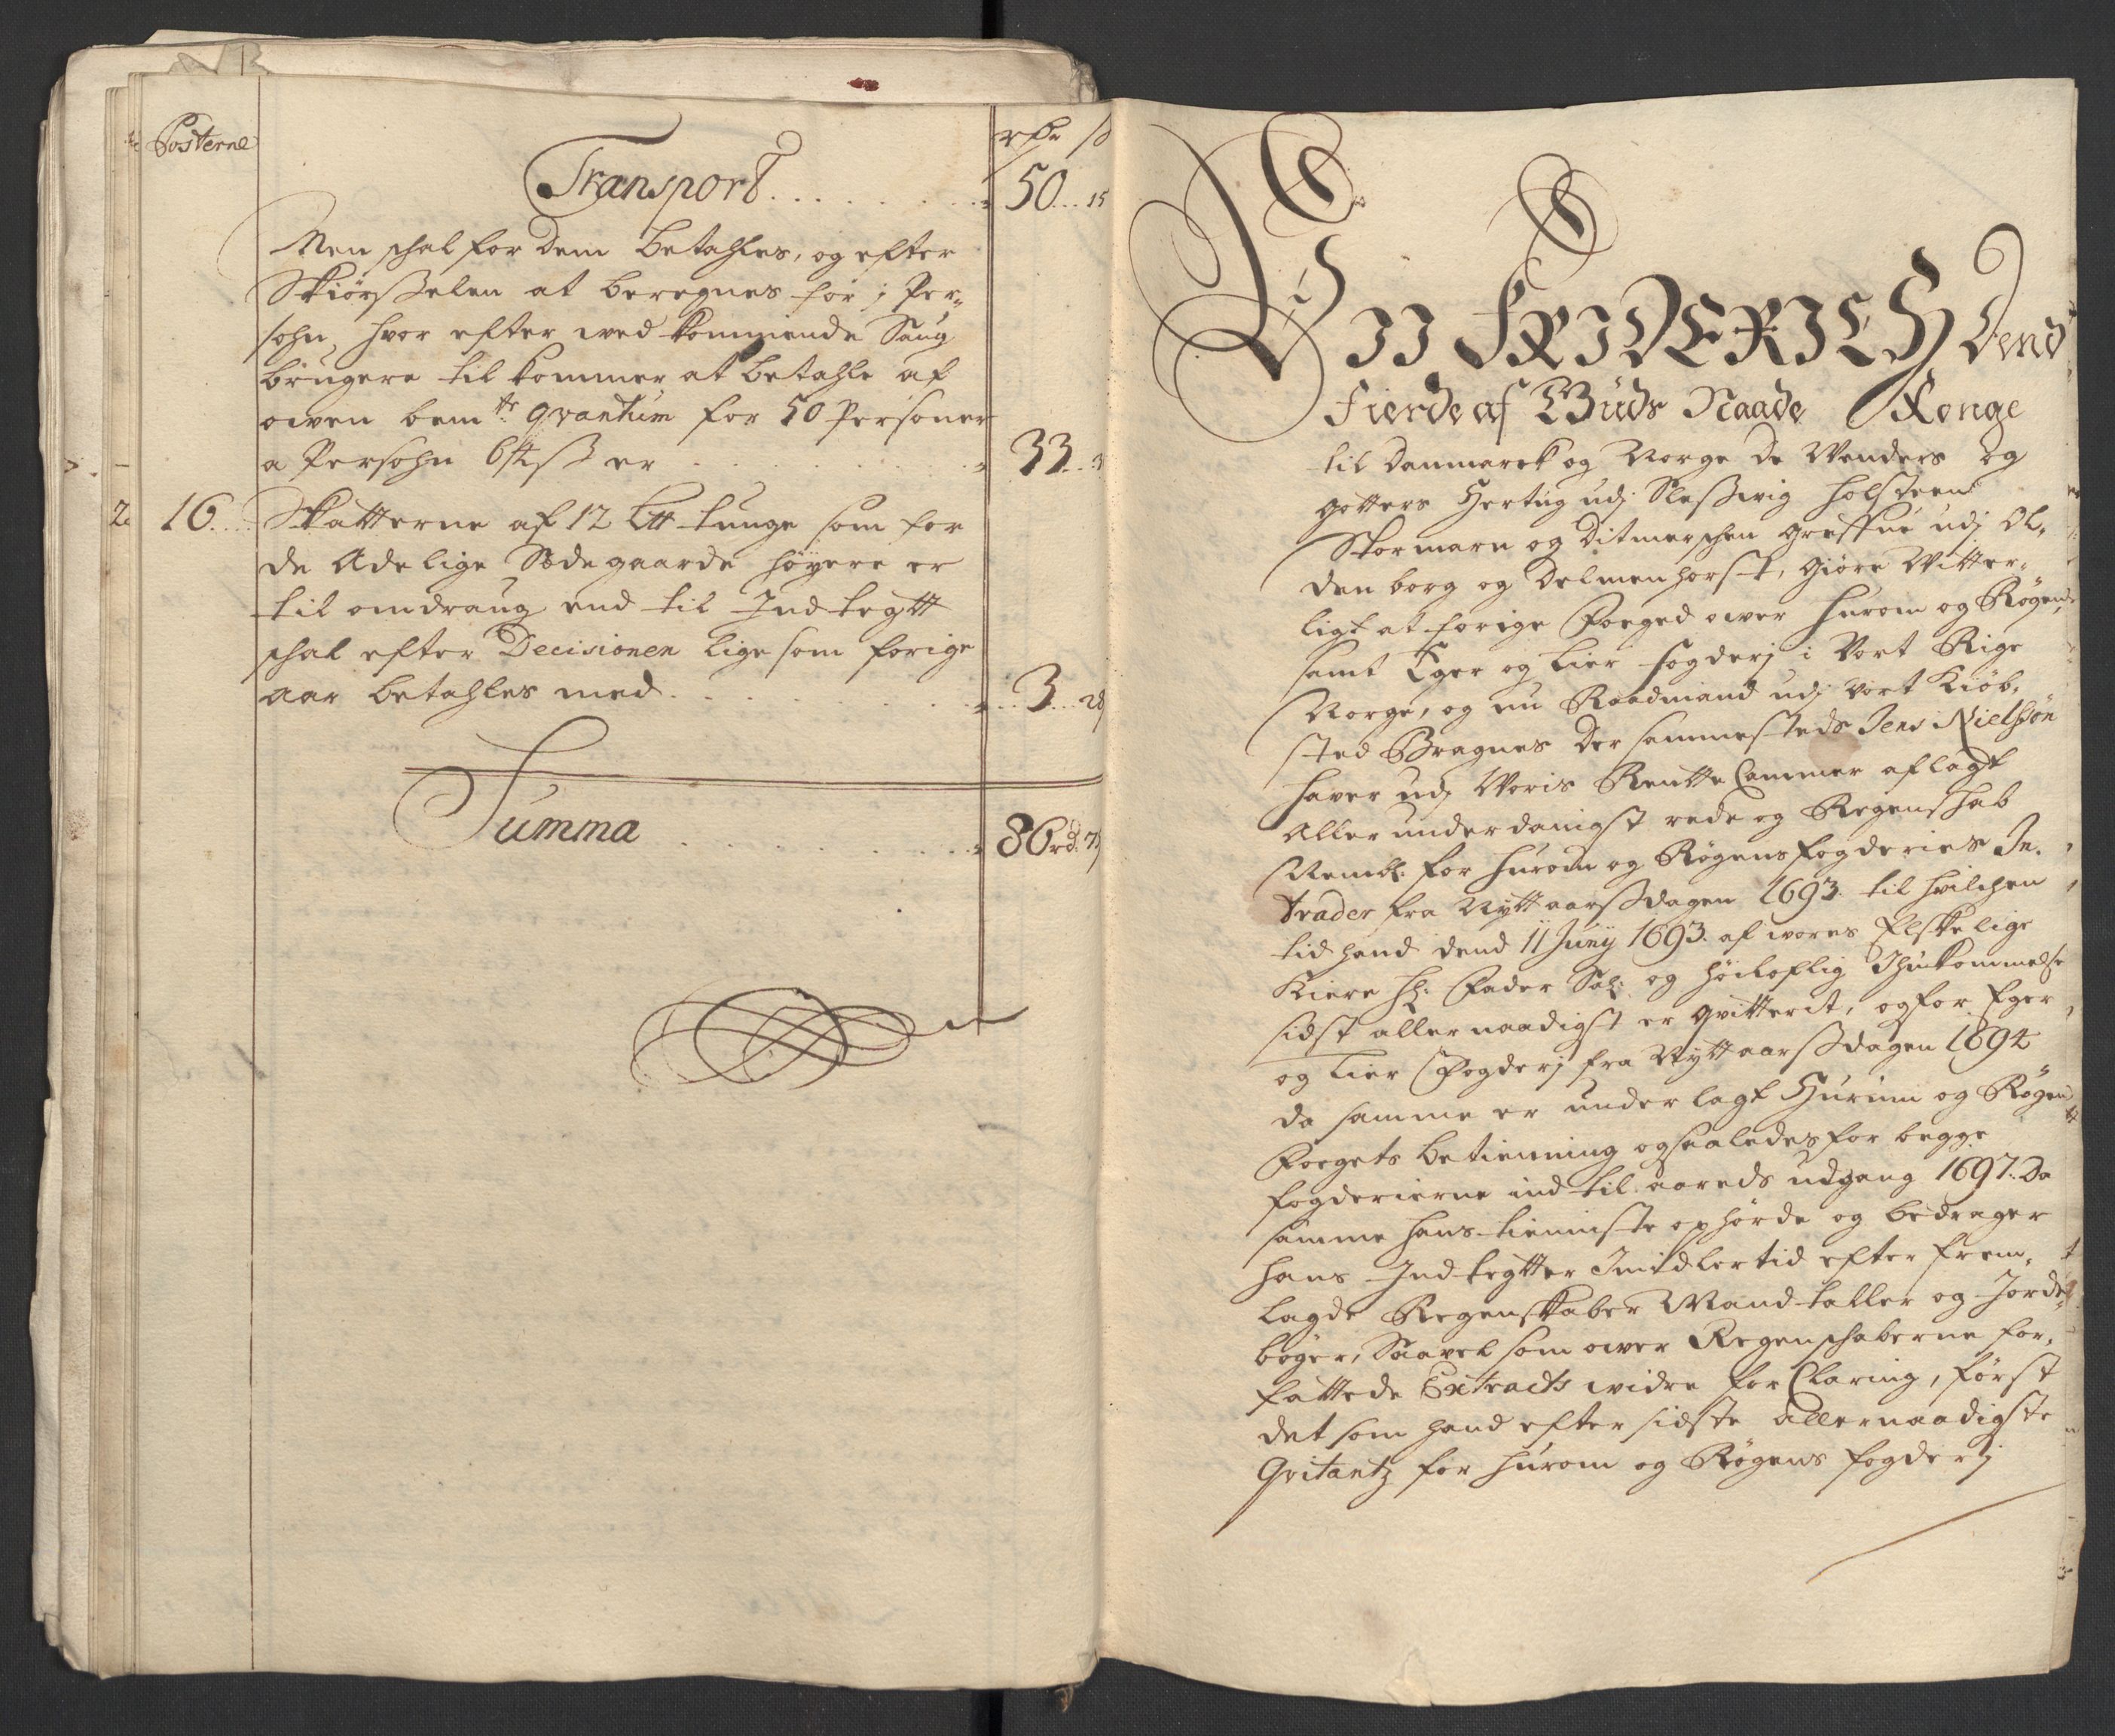 Posterne
rdr ß
Transport . . . . . . . . 50 . . . 15
Men schal for dem betahles, og efter
Skiørßelen at beregnes for j Per-
sohn, hvor efter wed kommende Saug
brugere til kommer at betahle af
owen bemte qvantum for 50 Personer
a Persohn 64 ß er . . . . . . . 33 . .
2 16 . . . Skatterne af 12 Ltt tunge som for
de Adelige Sædegaarde høyere er
til omdraug end til Indtegtt
schal efter Decisionen lige som forige
aar betahles med . . . . . . . 3 . . . 28
Summa . . . . . . . 86 rd.
WII FRIDERICH Dend
Fierde af Guds Naade Konge
til Danmarck og Norge de Wenders og
Gotters Hertug udj Slesswig Holsteen
Stormarn og Ditmerschen Greffue udj Ol-
denborg og Delmenhorst, Giøre Witter-
ligt at forige Foeged ower Hurom og Røgens
samt Eger og Lier fogderj i Vort Rige
Norge, og nu Raadmand udj vort Kiøb-
sted Bragnes der sammesteds Jens Nielsøn
hawer udj Woris Rentte Cammer aflagt
Allerunderdanigst rede og Regenschab
Nembl. for Hurom og Røgens fogderies In-
trader fra Nyttaarßdagen 1693. til hvilchen
tid hand dend 11 Junij 1693. af wores Elskelige
Kiere Hr. Fader Sal: og høiloflig Ihukommelse
sidst allernaadigst er qvitterit, og for Eger
og Lier Fogderj fra Nyttaarßdagen 1694
da samme er under lagt Hurum og Røgens
Foegets betienning og saaledes for begge
fogderierne ind til aareds udgang 1697. Da
samme hans tienniste ophørde og bedrager
hans Indtegtter Imidlertid efter frem-
lagde Regenskaber Mandtaller og Jorde-
bøger, Saavel som ower Regenschaberne for-
fattede Extracts widre forClaring, først
det som hand efter sidste allernaadigste
Qvitantz for Hurom og Røgens fogderj